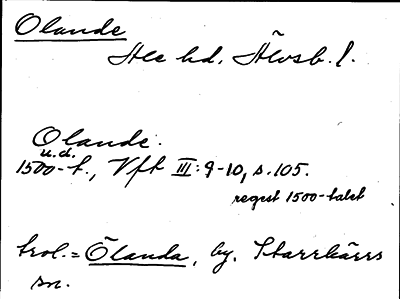 Ölande
Ale hd. Älvsb. l.
Olande.
u.d.
1500-t., Vft III: 9-10, s. 105.
regest 1500-talet
trol. = Ölanda, by. Starrkärrs
sn.